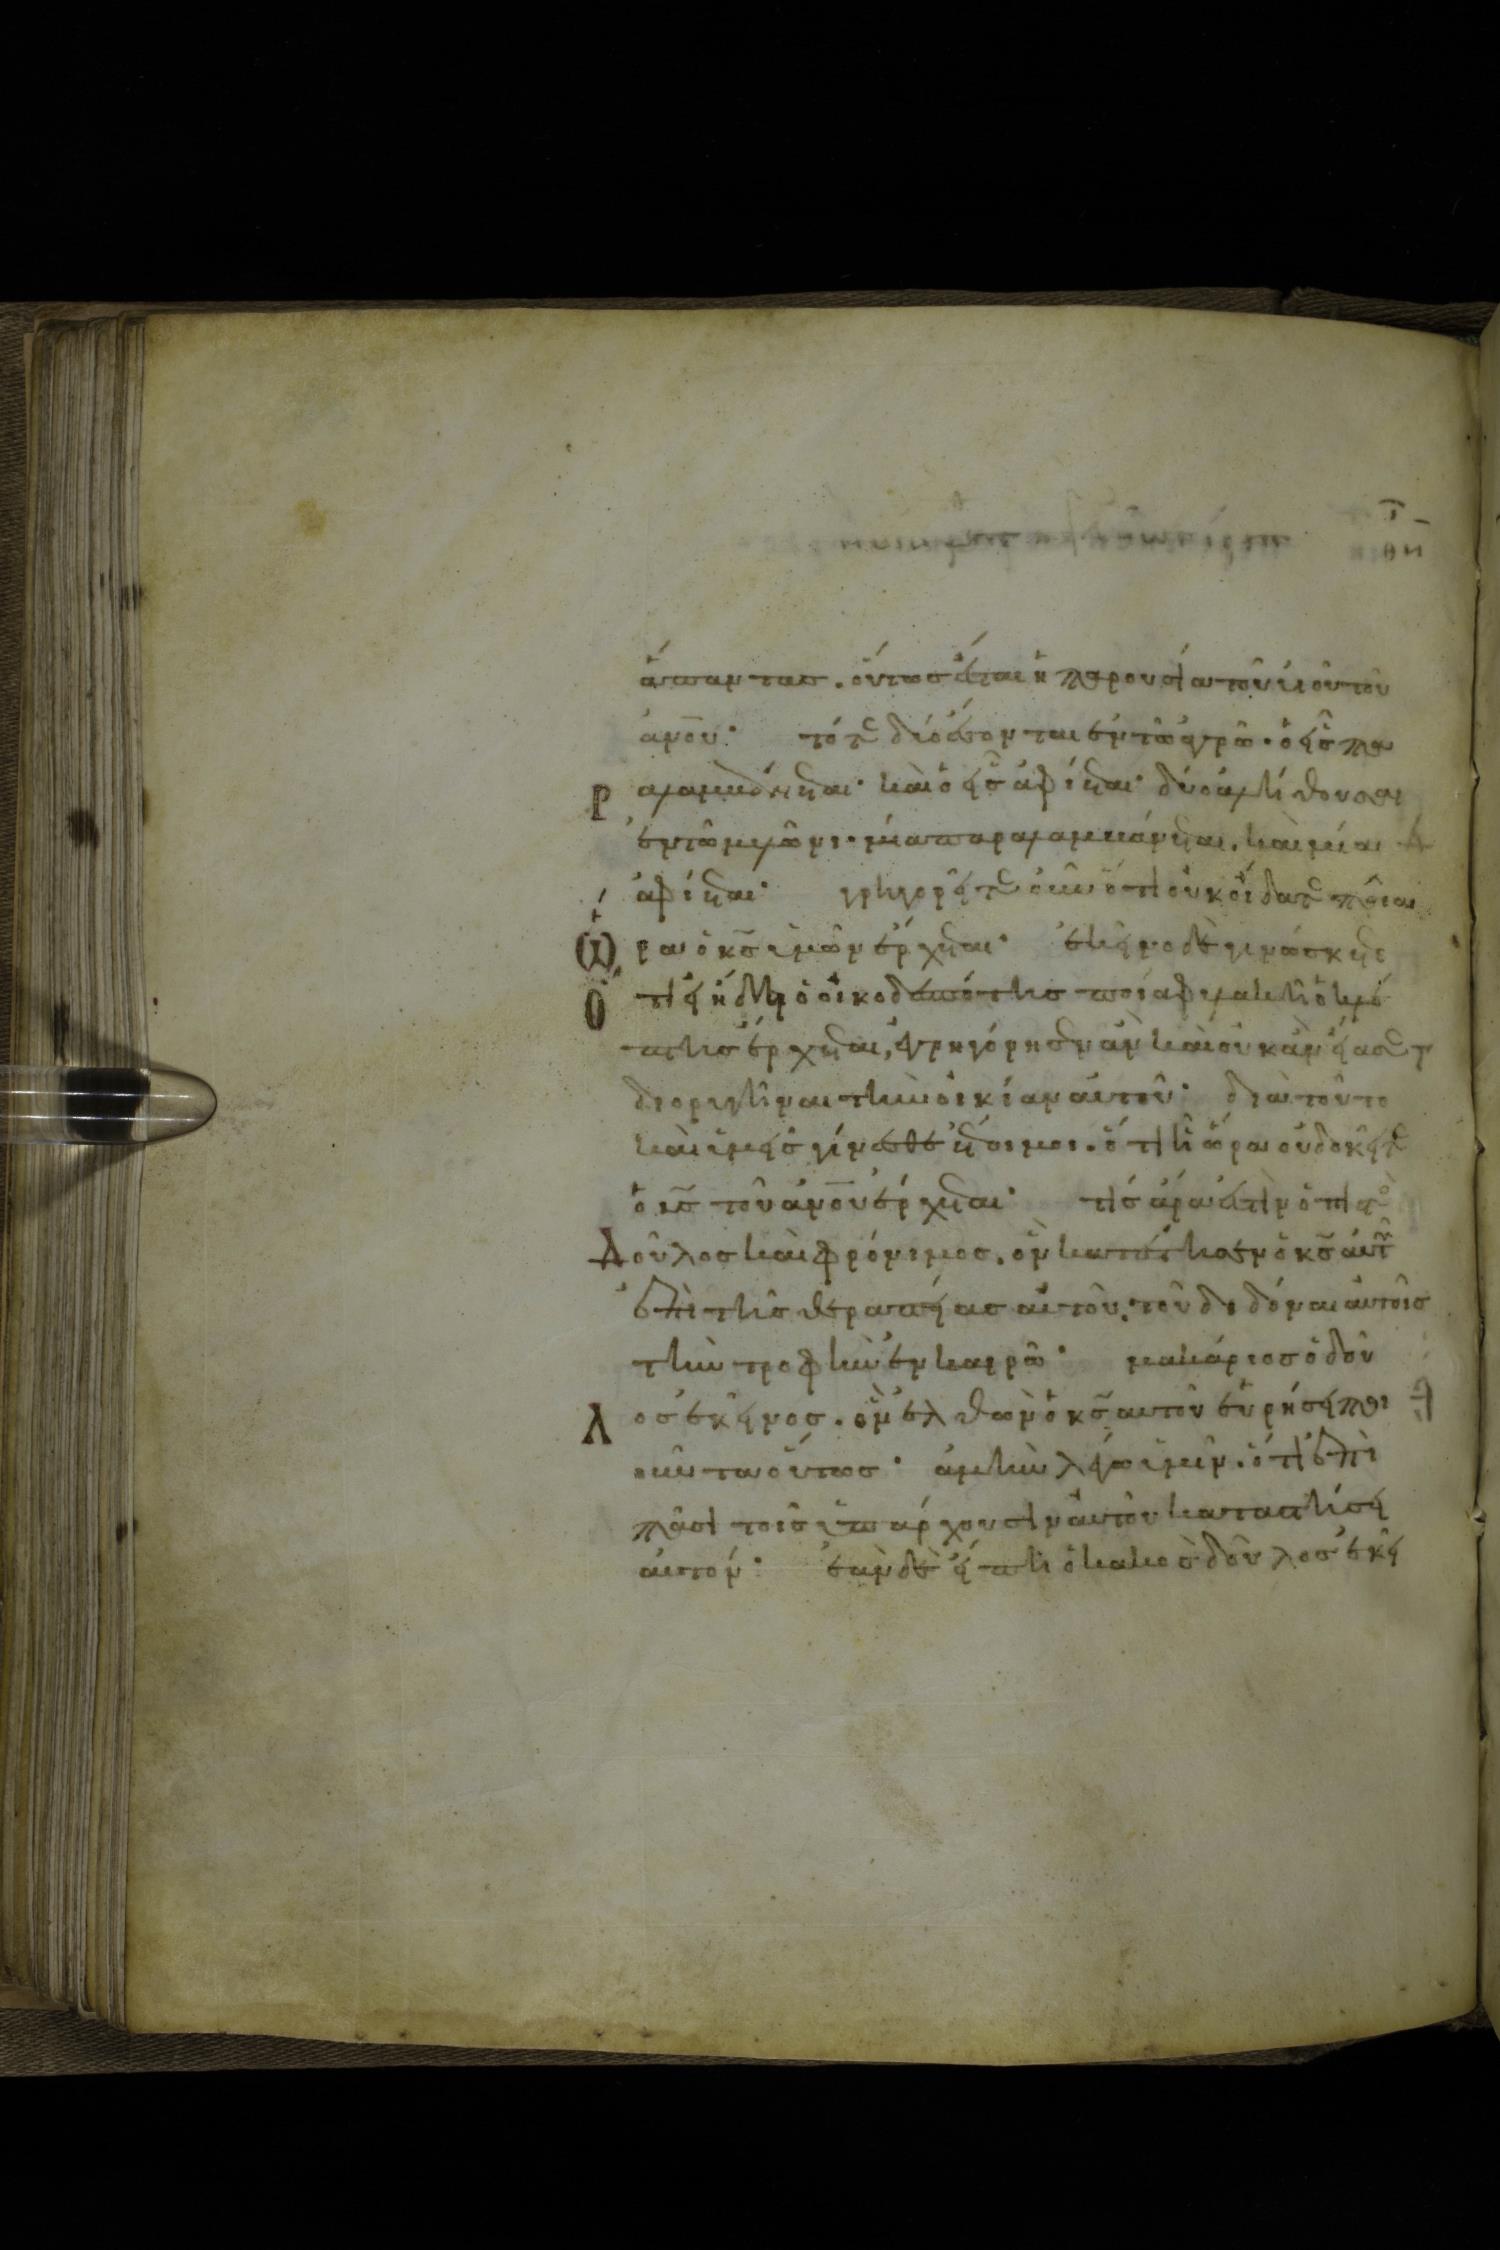 ἅπαντας. οὕτως ἔσται ἡ παρουσία τοῦ υἱοῦ τοῦ
ἀνου· τότε δύο ἔσονται ἐν τῶ ἀγρῶ· ὁ εἷς πα
ραλαμβάνεται· καὶ ὁ εἷς ἀφίεται· δύο ἀλήθουσαι
ἐν τῶ μυλῶνι· μία παραλαμβάνεται. καὶ μία
ἀφίεται· γρηγορεῖτε οὖν ὅτι οὐκ οἴδατε ποία
ὥρα ὁ κς ὑμῶν ἔρχεται· ἐκεῖνο δὲ γινώσκετε
ὅτι εἰ ἤδει ὁ οἰκοδεσπότης ποία φυλακῆ ὁ κλέ
πτης ἔρχεται, ἐγρηγόρησεν ἂν καὶ οὐκ ἂν εἴασεν
διορυγῆναι τὴν οἰκίαν αὐτοῦ· διὰ τοῦτο
καὶ ὑμεῖς γίνεσθε ἕτοιμοι. ὅτι ἧ ὥρα οὐ δοκεῖτε
ὁ υς τοῦ ἀνου ἔρχεται· τίς ἄρα ἐστὶν ὁ πιστὸ
Δοῦλος καὶ φρόνιμος. ὃν κατέστησεν ὁ κς αὐτοῦ
ἐπὶ τῆς θεραπείας αὐτοῦ. τοῦ διδόναι αὐτοῖς
τὴν τροφὴν ἐν καιρῶ· μακάριος ὁ δοῦ
λος ἐκεῖνος. ὃν ἐλθὼν ὁ κς αὐτοῦ εὑρήσει ποι
οῦντα οὕτως· ἀμὴν λέγω ὑμῖν. ὅτι ἐπὶ
πᾶσι τοῖς ὑπάρχουσιν αὐτοῦ καταστήσει
αὐτόν· ἐὰν δὲ εἴπη ὁ κακὸς δοῦλος ἐκεῖ